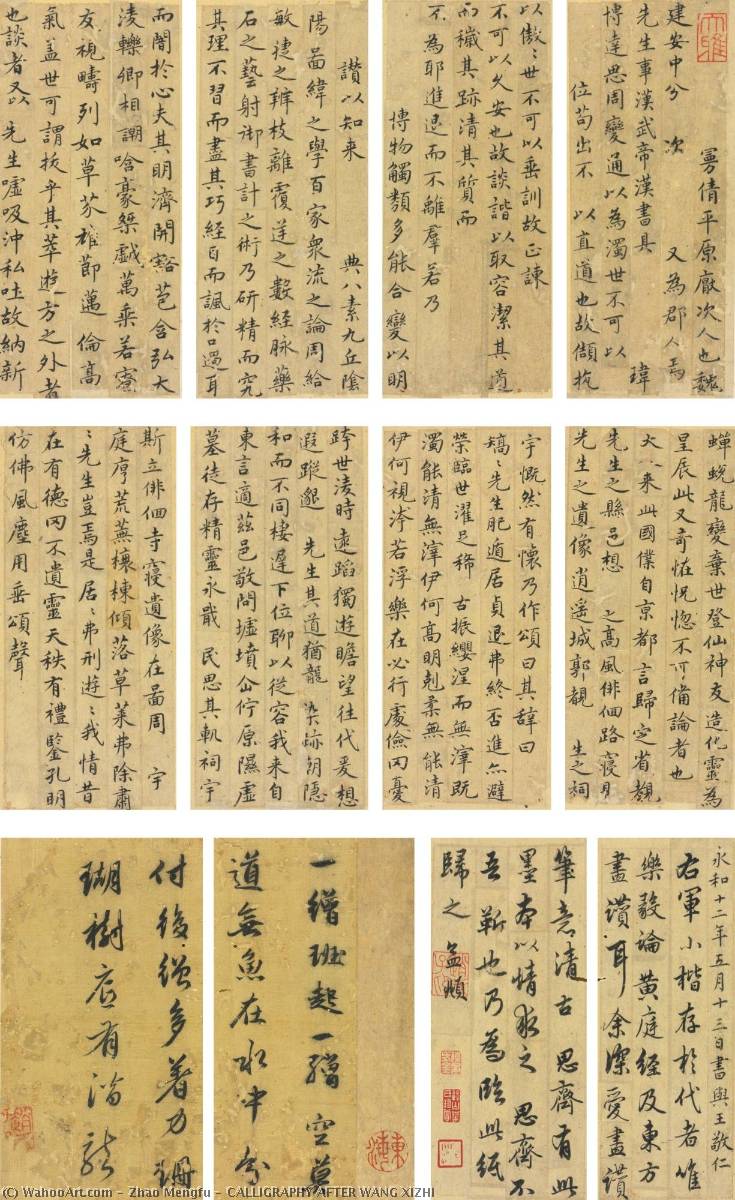 大雅
曼倩平原厭次人也魏
建安中分 次 又為郡人焉
先生事漢武帝漢書具 瑋
博達思周變通以為濁世不可以
位苟出不 以直道也故頡抗
以傲〻世不可以垂訓故正諫
不可以久安也故談諧以取容潔其道
而穢其跡清其質而
不為耶進退而不離羣若乃
博物觸類多能合變以明
讚以知来 典八素九丘陰
陽啚緯之學百家衆流之論周給
敏捷之辨枝離覆逆之數經脉藥
石之藝射御書計之術乃研精而究
其理不習而盡其巧經目而諷於口過耳
而闇於心夫其明濟開豁苞含弘大
淩轢卿相謿哈豪桀戲萬乘若寮
友視疇列如草芥雄節邁倫高
氣盖世可謂拔乎其萃遊方之外者
也談者又以 先生噓吸沖私吐故納新
蟬蛻龍變棄世登仙神友造化靈為
星辰此又奇恠怳惚不可備論者也
大 来此國僕自京都言歸定省覩
先生之縣邑想 之高風徘徊路寢見
先生之遺像逍遥城郭覩 生之祠
宇慨然有懷乃作頌曰其辭曰
矯〻先生肥遁居貞退弗終否進亦避
榮臨世濯足稀 古振纓涅而無滓既
濁能清無滓伊何高明剋柔無能清
伊何視洿若浮樂在必行處儉罔憂
跨世淩時遠蹈獨遊瞻望往代爰想
遐蹤邈 先生其道猶龍染跡朝隱
和而不同棲遲下位聊以從容我来自
東言適兹邑敬問墟墳企佇原隰虛
墓徒存精靈永戢 民思其軌祠宇
斯立徘徊寺寢遺像在啚周 宇
庭序荒蕪榱棟傾落草萊弗除肅
〻先生豈焉是居〻弗刑遊〻我情昔
在有德罔不遺靈天秩有禮鑒孔明
仿佛風塵用垂頌聲
永和十二年五月十三日書與王敬仁
右軍小楷存於代者唯
樂毅論黄庭經及東方
畫讚耳余深愛畫讚
筆意清古思齋有此
墨本以情求之思齋不
吾靳也乃為臨此紙
歸之孟頫
一繒班起一繒空莫
道無魚在水中央
付後繒多著力珊
瑚樹底有潛龍
© WahooArt.com - Zhao Mengfu - CALLIGRAPHY AFTER WANG XIZHI